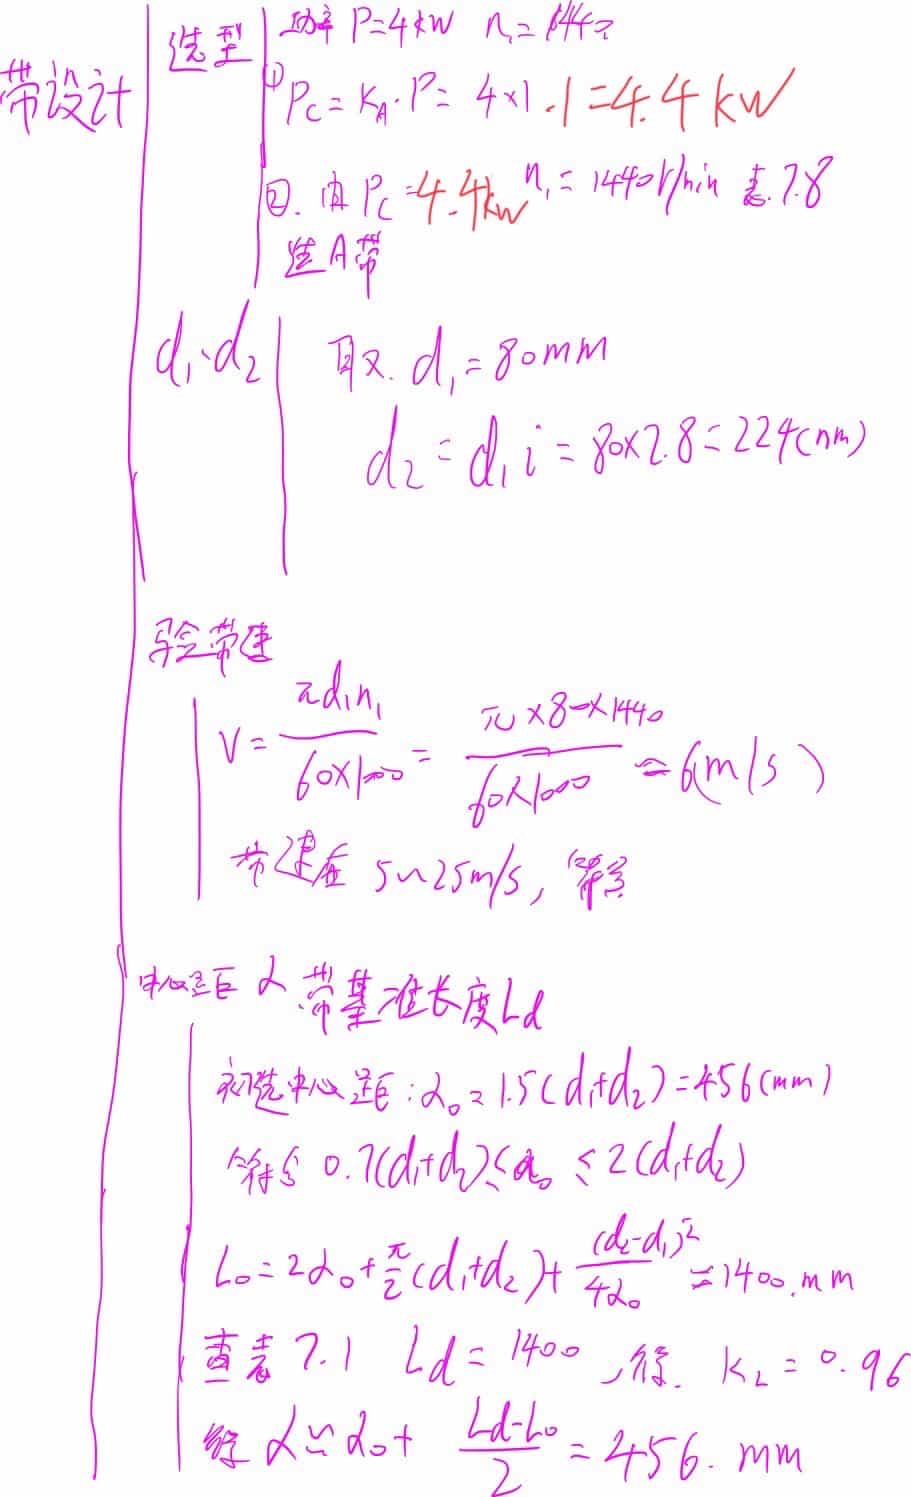 带设计
选型
功率 P=4kW n₁=1440
① Pc=KA·P=4×1.1=4.4kW
②. 由Pc=4.4kW n₁=1440r/min 表.7.8
选A带
d₁、d₂
取.d₁=80mm
d₂=d₁i=80×2.8=224(mm)
验带速
V=πd₁n₁/60×1000=π×80×1440/60×1000≈6(m/s)
带速在5~25m/s,符合
中心距α 带基准长度Ld
初选中心距:α₀=1.5(d₁+d₂)=456(mm)
符合0.7(d₁+d₂)≤a₀≤2(d₁+d₂)
L₀=2α₀+π/2(d₁+d₂)+(d₂-d₁)²/4α₀≈1400.mm
查表7.1 Ld=1400,得.KL=0.96
α≈α₀+Ld-L₀/2=456.mm